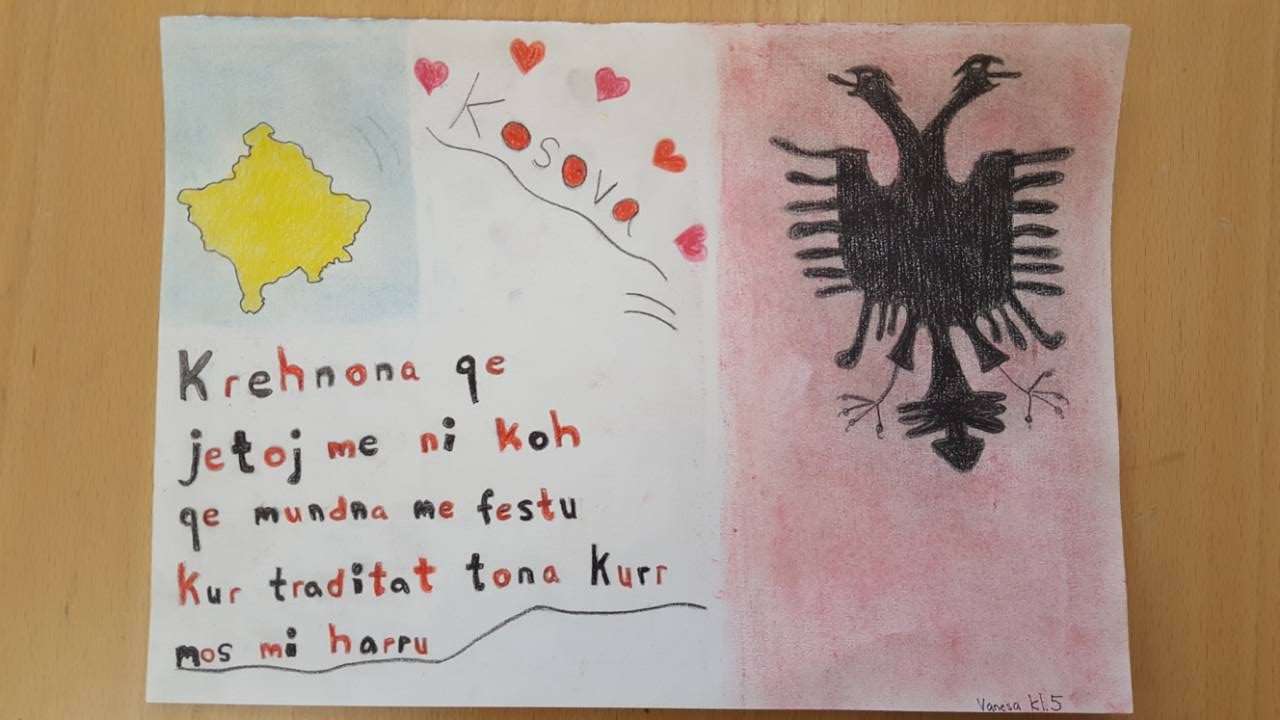 Kosova
Krehnona qe
jetoj me ni koh
qe mundna me festu
Kur traditat tona Kurr
mos mi harru
Vanesa kl.5